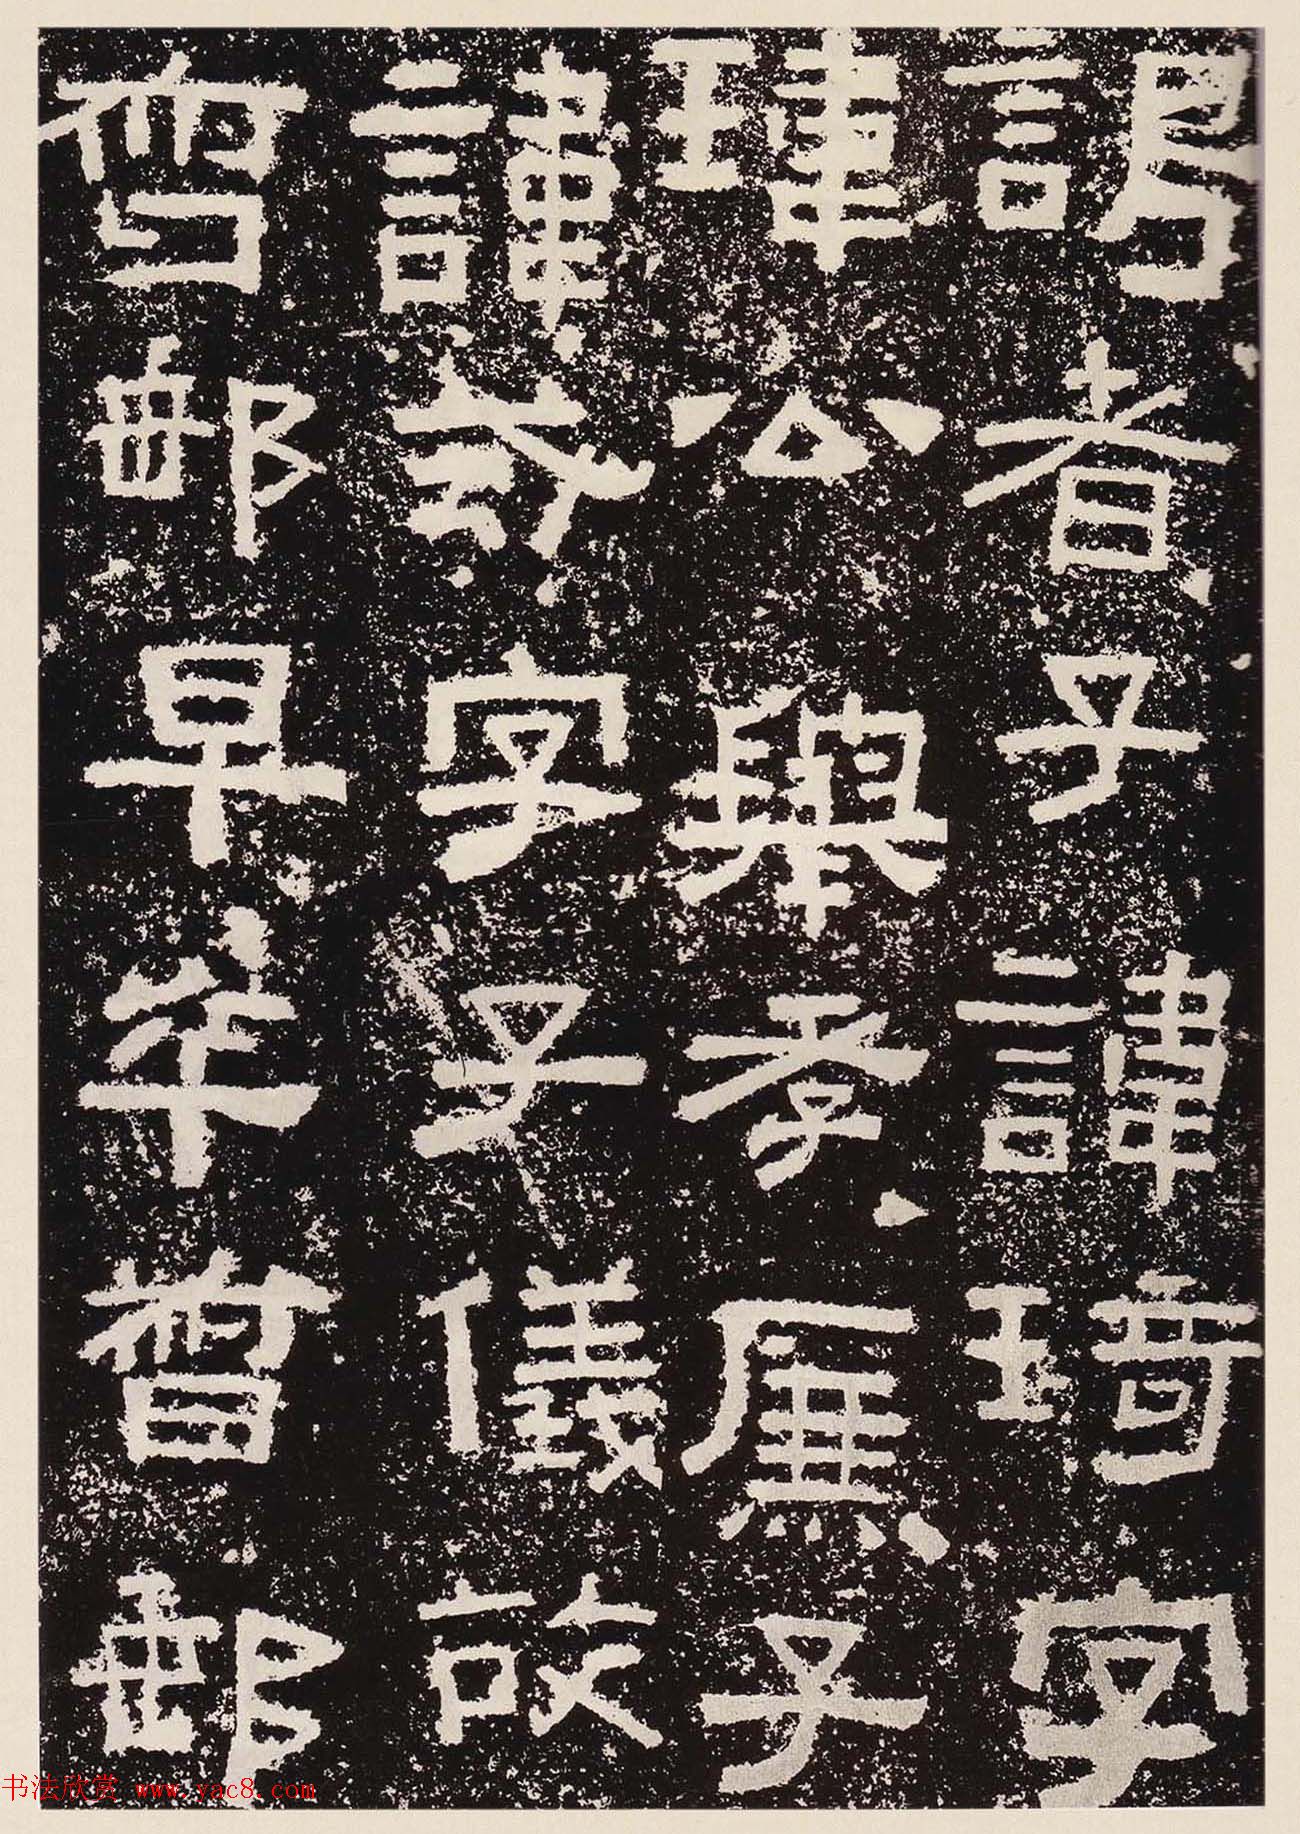 謁者子諱琦字
瑋公舉孝廉子
諱弇字子儀故
督郵早卒督郵
书法欣赏 www.yac8.com